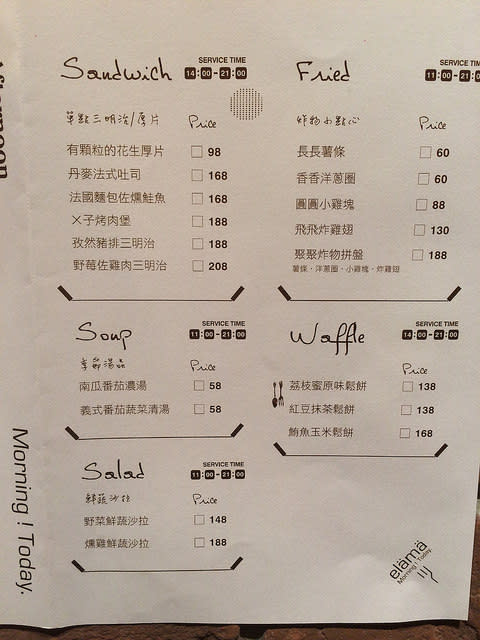 Afternoon
Sandwich
SERVICE TIME
14:00-21:00
單點三明治/厚片 Price
有顆粒的花生厚片 98
丹麥法式吐司 168
法國麵包佐燻鮭魚 168
ㄨ子烤肉堡 188
孜然豬排三明治 188
野莓佐雞肉三明治 208
Fried
SERVICE TIME
11:00-21:0
炸物小點心 Price
長長薯條 60
香香洋蔥圈 60
圓圓小雞塊 88
飛飛炸雞翅 130
聚聚炸物拼盤 188
薯條・洋蔥圈・小雞塊・炸雞翅
Soup
SERVICE TIME
11:00-21:00
季節湯品 Price
南瓜番茄濃湯 58
義式番茄蔬菜清湯 58
Waffle
SERVICE TIME
14:00-21:00
Price
荔枝蜜原味鬆餅 138
紅豆抹茶鬆餅 138
鮪魚玉米鬆餅 168
Salad
SERVICE TIME
11:00-21:00
鮮蔬沙拉 Price
野菜鮮蔬沙拉 148
燻雞鮮蔬沙拉 188
Morning! Today.
elämä
Morning! Today.